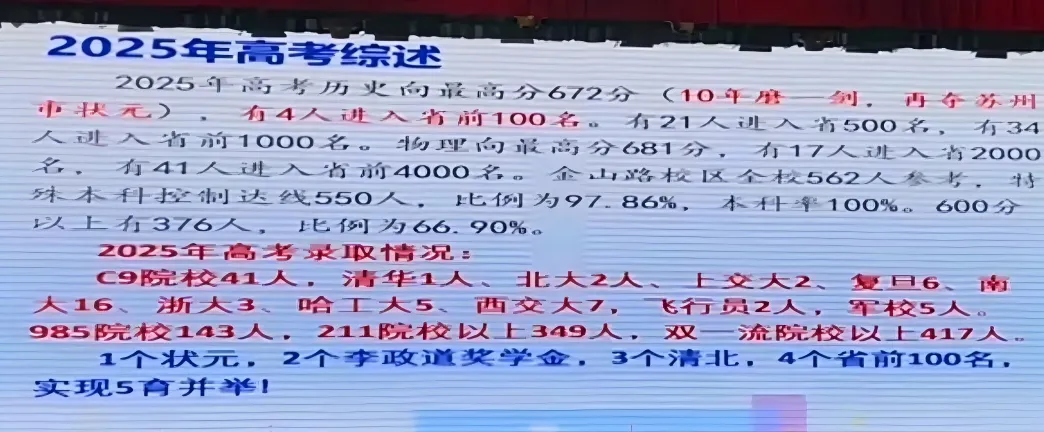 2025年高考综述
2025年高考历史向最高分672分（10年磨一剑，再夺苏州
市状元），有4人进入省前100名。有21人进入省500名，有34
人进入省前1000名。物理向最高分681分，有17人进入省2000
名，有41人进入省前4000名。金山路校区全校562人参考，特
殊本科控制达线550人，比例为97.86%，本科率100%。600分
以上有376人，比例为66.90%。
2025年高考录取情况：
C9院校41人，清华1人、北大2人、上交大2、复旦6、南
大16、浙大3、哈工大5、西交大7，飞行员2人，军校5人。
985院校143人，211院校以上349人，双一流院校以上417人。
1个状元，2个李政道奖学金，3个清北，4个省前100名，
实现5育并举！